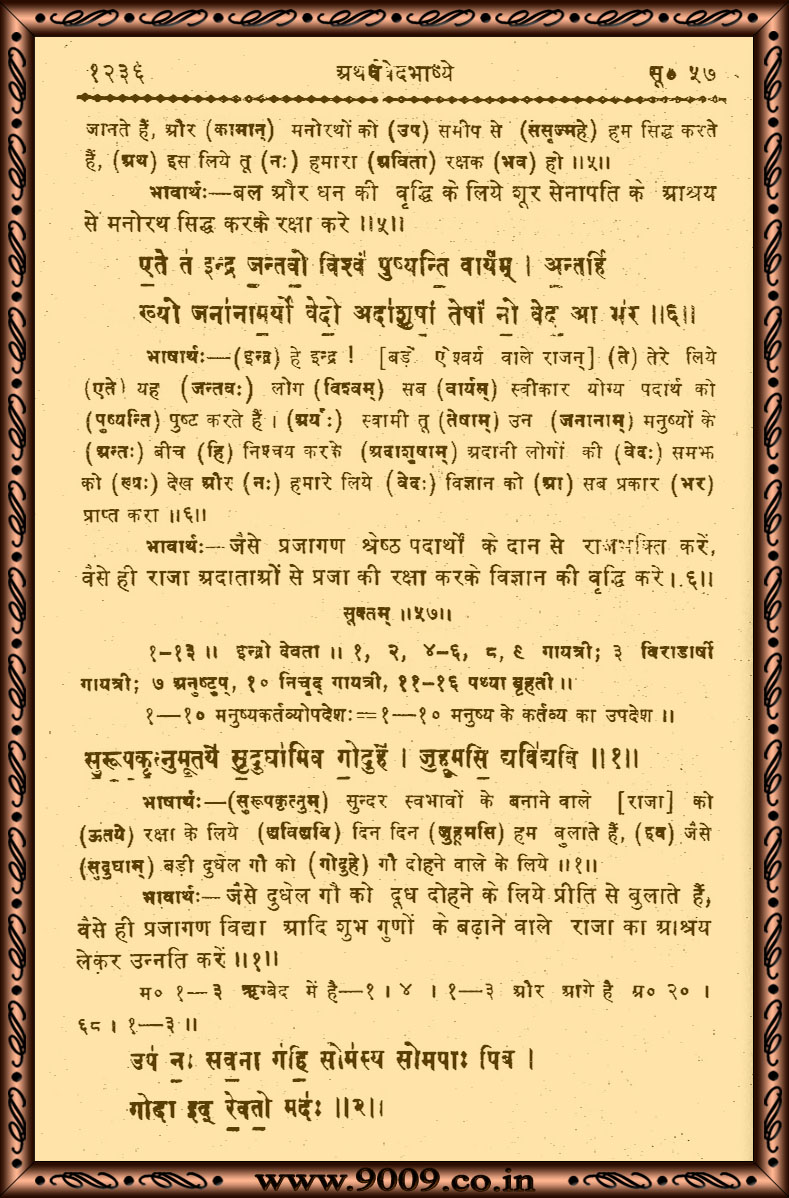 १२३६ अथर्ववेदभाष्ये सू० ५७
जानते हैं, और (कामान्) मनोरथों को (उप) समीप से (ससृज्महे) हम सिद्ध करते
हैं, (अथ) इस लिये तू (नः) हमारा (अविता) रक्षक (भव) हो ॥५॥
भावार्थः—बल और धन की वृद्धि के लिये शूर सेनापति के आश्रय
से मनोरथ सिद्ध करके रक्षा करे ॥५॥
ए॒ते त॑ इन्द्र ज॒न्तवो॒ विश्वं॑ पुष्यन्ति॒ वार्य॑म् । अ॒न्तर्हि
ख्यो जना॑नाम॒र्यो वेदो॒ अदा॑शुषां॒ तेषां॑ नो॒ वेद॒ आ भ॑र ॥६॥
भाषार्थः—(इन्द्र) हे इन्द्र ! [बड़े ऐश्वर्य वाले राजन्] (ते) तेरे लिये
(एते) यह (जन्तवः) लोग (विश्वम्) सब (वार्यम्) स्वीकार योग्य पदार्थ को
(पुष्यन्ति) पुष्ट करते हैं । (अर्यः) स्वामी तू (तेषाम्) उन (जनानाम्) मनुष्यों के
(अन्तः) बीच (हि) निश्चय करके (अदाशुषाम्) अदानी लोगों की (वेदः) समझ
को (ख्यः) देख और (नः) हमारे लिये (वेदः) विज्ञान को (आ) सब प्रकार (भर)
प्राप्त करा ॥६॥
भावार्थः—जैसे प्रजागण श्रेष्ठ पदार्थों के दान से राजभक्ति करें,
वैसे ही राजा अदाताओं से प्रजा की रक्षा करके विज्ञान की वृद्धि करे।.६॥
सूक्तम् ॥५७॥
१-१३ ॥ इन्द्रो देवता ॥ १, २, ४-६, ८, ९ गायत्री; ३ विराडार्षी
गायत्री; ७ अनुष्टुप्, १० निचृद् गायत्री, ११-१६ पथ्या बृहती ॥
१—१० मनुष्यकर्तव्योपदेशः==१—१० मनुष्य के कर्तव्य का उपदेश ॥
सु॒रू॒प॒कृ॒त्नुमू॒तये॑ सु॒दुघा॑मिव गो॒दुहे॑ । जु॒हू॒मसि॒ द्यवि॑द्यवि ॥१॥
भाषार्थः—(सुरूपकृत्नुम्) सुन्दर स्वभावों के बनाने वाले [राजा] को
(ऊतये) रक्षा के लिये (द्यविद्यवि) दिन दिन (जुहूमसि) हम बुलाते हैं, (इव) जैसे
(सुदुघाम्) बड़ी दुधेल गौ को (गोदुहे) गौ दोहने वाले के लिये ॥१॥
भावार्थः—जैसे दुधेल गौ को दूध दोहने के लिये प्रीति से बुलाते हैं,
वैसे ही प्रजागण विद्या आदि शुभ गुणों के बढ़ाने वाले राजा का आश्रय
लेकर उन्नति करें ॥१॥
म० १—३ ऋग्वेद में है—१ । ४ । १—३ और आगे है अ० २० ।
६८ । १—३ ॥
उप॑ नः॒ सव॒ना ग॑हि॒ सोम॑स्य सोमपाः पिब ।
गो॒दा इद् रे॒वतो॒ मदः॑ ॥२॥
www.9009.co.in